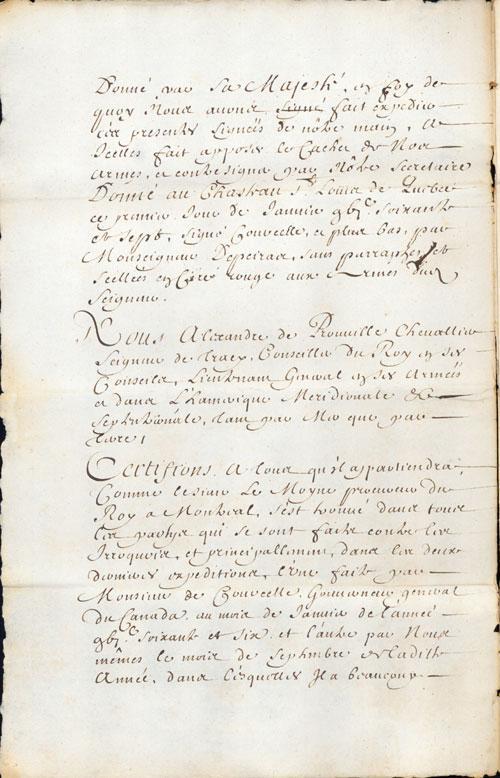 Donné par Sa Majesté, en foy de
quoy Nous avons signé fait expedier
ces presentes signées de nôtre main, A
Icelles fait apposer le Cachet de Nos
Armes, et contresigné par Nôtre Secretaire
Donné au Chasteau St. Louis de Quebec
ce premier Jour de Janvier gbjc. soixante
et sept, signé Courcelle, et plus bas, par
Monseigneur Depeiras, sans parraphe, et
scellées en Cire rouge aux Armes dud.
Seigneur.
Nous Alexandre de Prouville Chevallier
Seigneur de Tracy, Conseiller du Roy en ses
Conseils, Lieutenant General en ses Armées
et dans L'Hamerique Meridionale &
Septentrionale, tant par Mer que par
terre,
Certifions A tous qu'il appartiendra,
Comme le sieur Le Moyne procureur du
Roy a Montreal, s'est trouvé dans tous
les partys qui se sont faits contre les
Irroquois, et principallement, dans les deux
dernieres expeditions, l'Une faite par
Monsieur de Courcelle, Gouverneur general
du Canada, au mois de Janvier de l'année
gbjc. soixante et six, et l'autre par Nous
mêmes le mois de Septembre de ladite
Année, dans lesquelles Il a beaucoup